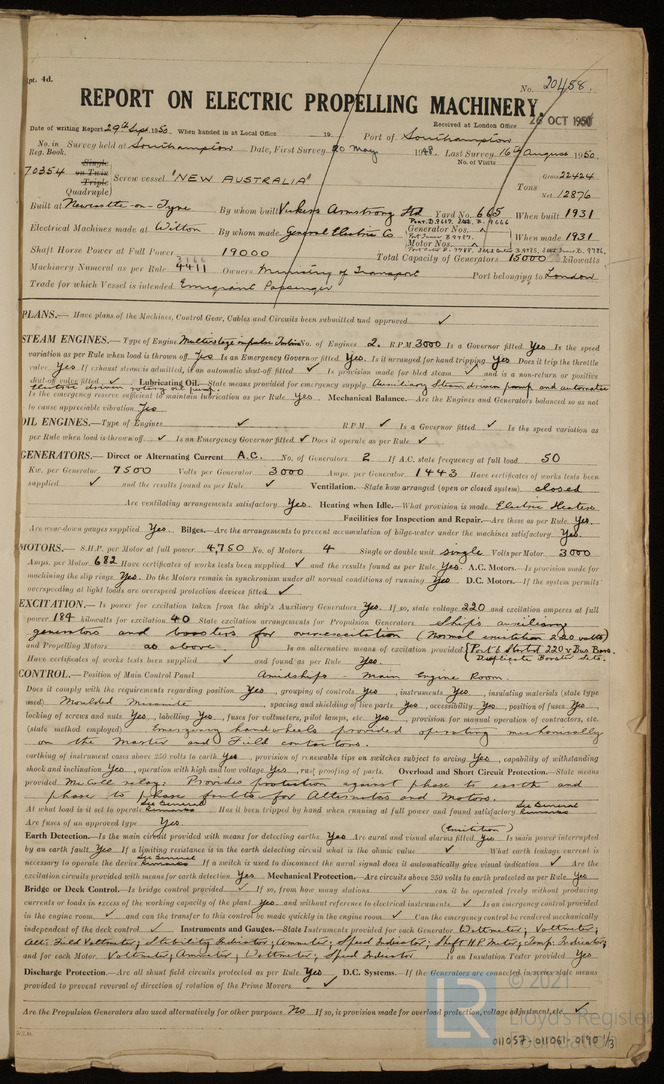 pt. 4d.
No. 20458.
REPORT ON ELECTRIC PROPELLING MACHINERY
Received at London Office 26 OCT 1950
Date of writing Report 29th Sept. 1950. When handed in at Local Office 19 Port of Southampton
No. in Reg. Book. Survey held at Southampton Date, First Survey 20 May 1948. Last Survey 16th August 1950.
No. of Visits
70354 Single on Twin Triple Quadruple Screw vessel "NEW AUSTRALIA" Tons Gross 22424 Net 12876
Built at Newcastle-on-Tyne By whom built Vickers Armstrong Ltd Yard No. 665 When built 1931
Electrical Machines made at Witton By whom made General Electric Co Generator Nos. Motor Nos. When made 1931
Shaft Horse Power at Full Power 19000 Total Capacity of Generators 15000 kilowatts
Machinery Numeral as per Rule 3166 4411 Owners Ministry of Transport Port belonging to London
Trade for which Vessel is intended Emigrant Passenger
PLANS.— Have plans of the Machines, Control Gear, Cables and Circuits been submitted and approved ✓
STEAM ENGINES.— Type of Engine Multistage impulse Turbine No. of Engines 2. R.P.M. 3000 Is a Governor fitted Yes Is the speed
variation as per Rule when load is thrown off Yes Is an Emergency Governor fitted Yes. Is it arranged for hand tripping Yes Does it trip the throttle
valve Yes If exhaust steam is admitted, is an automatic shut-off fitted ✓ Is provision made for bled steam ✓ and is a non-return or positive
shut-off valve fitted ✓ Lubricating Oil.—State means provided for emergency supply Auxiliary Steam driven pump and automatic
electric driven rotary oil pump.
Is the emergency reserve sufficient to maintain lubrication as per Rule Yes. Mechanical Balance.—Are the Engines and Generators balanced so as not
to cause appreciable vibration Yes
OIL ENGINES.—Type of Engines ✓ R.P.M. ✓ Is a Governor fitted ✓ Is the speed variation as
per Rule when load is thrown off ✓ Is an Emergency Governor fitted ✓ Does it operate as per Rule ✓
GENERATORS.— Direct or Alternating Current A.C. No. of Generators 2 If A.C. state frequency at full load 50
Kw. per Generator 7500 Volts per Generator 3000 Amps. per Generator 1443 Have certificates of works tests been
supplied ✓ and the results found as per Rule ✓ Ventilation.—State how arranged (open or closed system) closed
Are ventilating arrangements satisfactory Yes. Heating when Idle.—What provision is made Electric Heaters
Facilities for Inspection and Repair.—Are these as per Rule Yes.
Are wear-down gauges supplied Yes. Bilges.—Are the arrangements to prevent accumulation of bilge-water under the machines satisfactory Yes.
MOTORS.— S.H.P. per Motor at full power 4,750 No. of Motors 4 Single or double unit single Volts per Motor 3000
Amps. per Motor 682 Have certificates of works tests been supplied ✓ and the results found as per Rule Yes. A.C. Motors.—Is provision made for
machining the slip rings Yes. Do the Motors remain in synchronism under all normal conditions of running Yes D.C. Motors.—If the system permits
overspeeding at light loads are overspeed protection devices fitted ✓
EXCITATION.— Is power for excitation taken from the ship's Auxiliary Generators Yes. If so, state voltage 220 and excitation amperes at full
power 184 kilowatts for excitation 40 State excitation arrangements for Propulsion Generators Ship's auxiliary
generators and boosters for overexcitation (Normal excitation 220 volts)
and Propelling Motors as above Is an alternative means of excitation provided (Port & Starbd 220 v Bus Bars. Duplicate Booster Sets.
Have certificates of works tests been supplied ✓ and found as per Rule Yes.
CONTROL.—Position of Main Control Panel Amidships - Main Engine Room.
Does it comply with the requirements regarding position Yes, grouping of controls Yes, instruments Yes, insulating materials (state type
used) Moulded Micanite, spacing and shielding of live parts Yes, accessibility Yes, position of fuses Yes,
locking of screws and nuts Yes, labelling Yes, fuses for voltmeters, pilot lamps, etc. Yes, provision for manual operation of contractors, etc.
(state method employed) Emergency handwheels provided operating mechanically
on the Master and Field contactors.
earthing of instrument cases above 250 volts to earth Yes, provision of renewable tips on switches subject to arcing Yes, capability of withstanding
shock and inclination Yes, operation with high and low voltage Yes, rat proofing of parts. Overload and Short Circuit Protection.—State means
provided McColl relays. Provides protection against phase to earth and
phase to phase faults for Alternators and Motors.
At what load is it set to operate See General Remarks. Has it been tripped by hand when running at full power and found satisfactory See General Remarks
Are fuses of an approved type Yes (Excitation)
Earth Detection.—Is the main circuit provided with means for detecting earths Yes Are aural and visual alarms fitted Yes Is main power interrupted
by an earth fault Yes If a limiting resistance is in the earth detecting circuit what is the ohmic value ✓ What earth leakage current is
necessary to operate the device See General Remarks If a switch is used to disconnect the aural signal does it automatically give visual indication ✓ Are the
excitation circuits provided with means for earth detection Yes Mechanical Protection.—Are circuits above 250 volts to earth protected as per Rule Yes
Bridge or Deck Control.—Is bridge control provided ✓ If so, from how many stations ✓ can it be operated freely without producing
currents or loads in excess of the working capacity of the plant Yes and without reference to electrical instruments ✓ Is an emergency control provided
in the engine room ✓ and can the transfer to this control be made quickly in the engine room ✓ Can the emergency control be rendered mechanically
independent of the deck control ✓ Instruments and Gauges.—State Instruments provided for each Generator Wattmeter, Voltmeter,
Alt: Field Voltmeter; Stability Indicator; Ammeter; Speed Indicator; Shaft H.P. Meter; Temp: Indicator;
and for each Motor Voltmeter, Ammeter, Wattmeter; Speed Indicator Is an Insulation Tester provided Yes
Discharge Protection.—Are all shunt field circuits protected as per Rule Yes D.C. Systems.—If the Generators are connected in series state means
provided to prevent reversal of direction of rotation of the Prime Movers ✓
Are the Propulsion Generators also used alternatively for other purposes No If so, is provision made for overload protection, voltage adjustment, etc. ✓
LR
© 2021
Lloyd's Register
Foundation
011057-011061-0190 1/3